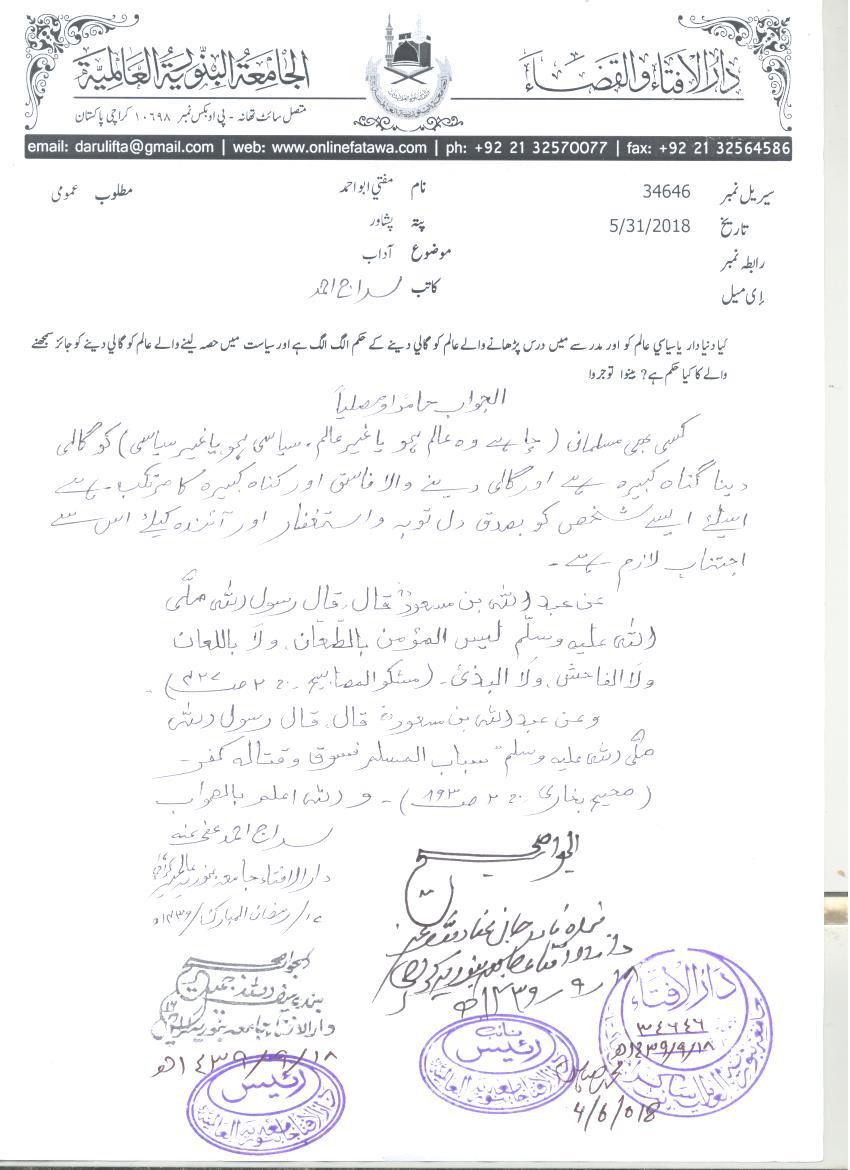 دار الافتاء والقضاء
الجامعة البنورية العالمية
متصل سائٹ تھانہ - پی او بکس نمبر ۱۰۶۹۸ کراچی پاکستان
email: darulifta@gmail.com | web: www.onlinefatawa.com | ph: +92 21 32570077 | fax: +92 21 32564586
سیریل نمبر 34646 نام مفتي ابو احمد مطلوب عمومی
تاریخ 5/31/2018 پتہ پشاور
رابطہ نمبر موضوع آداب
اِی میل کاتب سراج احمد
کیا دنیا دار یا سیاسي عالم کو اور مدرسے میں درس پڑھانے والے عالم کو گالي دینے کے حکم الگ الگ ہے اور سیاست میں حصہ لینے والے عالم کو گالي دینے کو جائز سمجھنے
والے کا کیا حکم ہے? بینوا توجروا
الجواب حامدا ومصلیاً
کسی بھی مسلمان (چاہے وہ عالم ہو یا غیر عالم، سیاسی ہو یا غیر سیاسی) کو گالی
دینا گناہ کبیرہ ہے اور گالی دینے والا فاسق اور گناہ کبیرہ کا مرتکب ہے
اسلئے ایسے شخص کو بصدق دل توبہ و استغفار اور آئندہ کیلئے اس سے
اجتناب لازم ہے۔
عن عبد اللہ بن مسعودؓ قال، قال رسول اللہ صلّی
اللہ علیہ وسلّم لیس المؤمن بالطّعّان، ولا باللعان
ولا الفاحش، ولا البذئ۔ (مشکو المصابیح ج ۲ ص
وعن عبد اللہ بن مسعودؓ قال، قال رسول اللہ
صلّی اللہ علیہ وسلم "سباب المسلم فسوق وقتالہ کفر۔
(صحیح بخاری ج ۲ ص ۸۹۳)۔ واللہ اعلم بالصواب
سراج احمد عفی عنہ
دار الافتاء جامعہ بنوریہ عالمیہ
رمضان المبارک/۱۴۳۹ھ
الجواب صحیح
۱۴۳۹/۹/۱۸ھ
الجواب صحیح
دار الافتاء جامعہ بنوریہ
۱۴۳۹/۹/۱۸ھ
رئیس
دار الافتاء جامعہ بنوریہ العالمیہ
نائب
رئیس
دار الافتاء جامعہ بنوریہ العالمیہ
دار الافتاء
۳۴۶۴۶
۱۴۳۹/۹/۱۸ھ
4/6/018